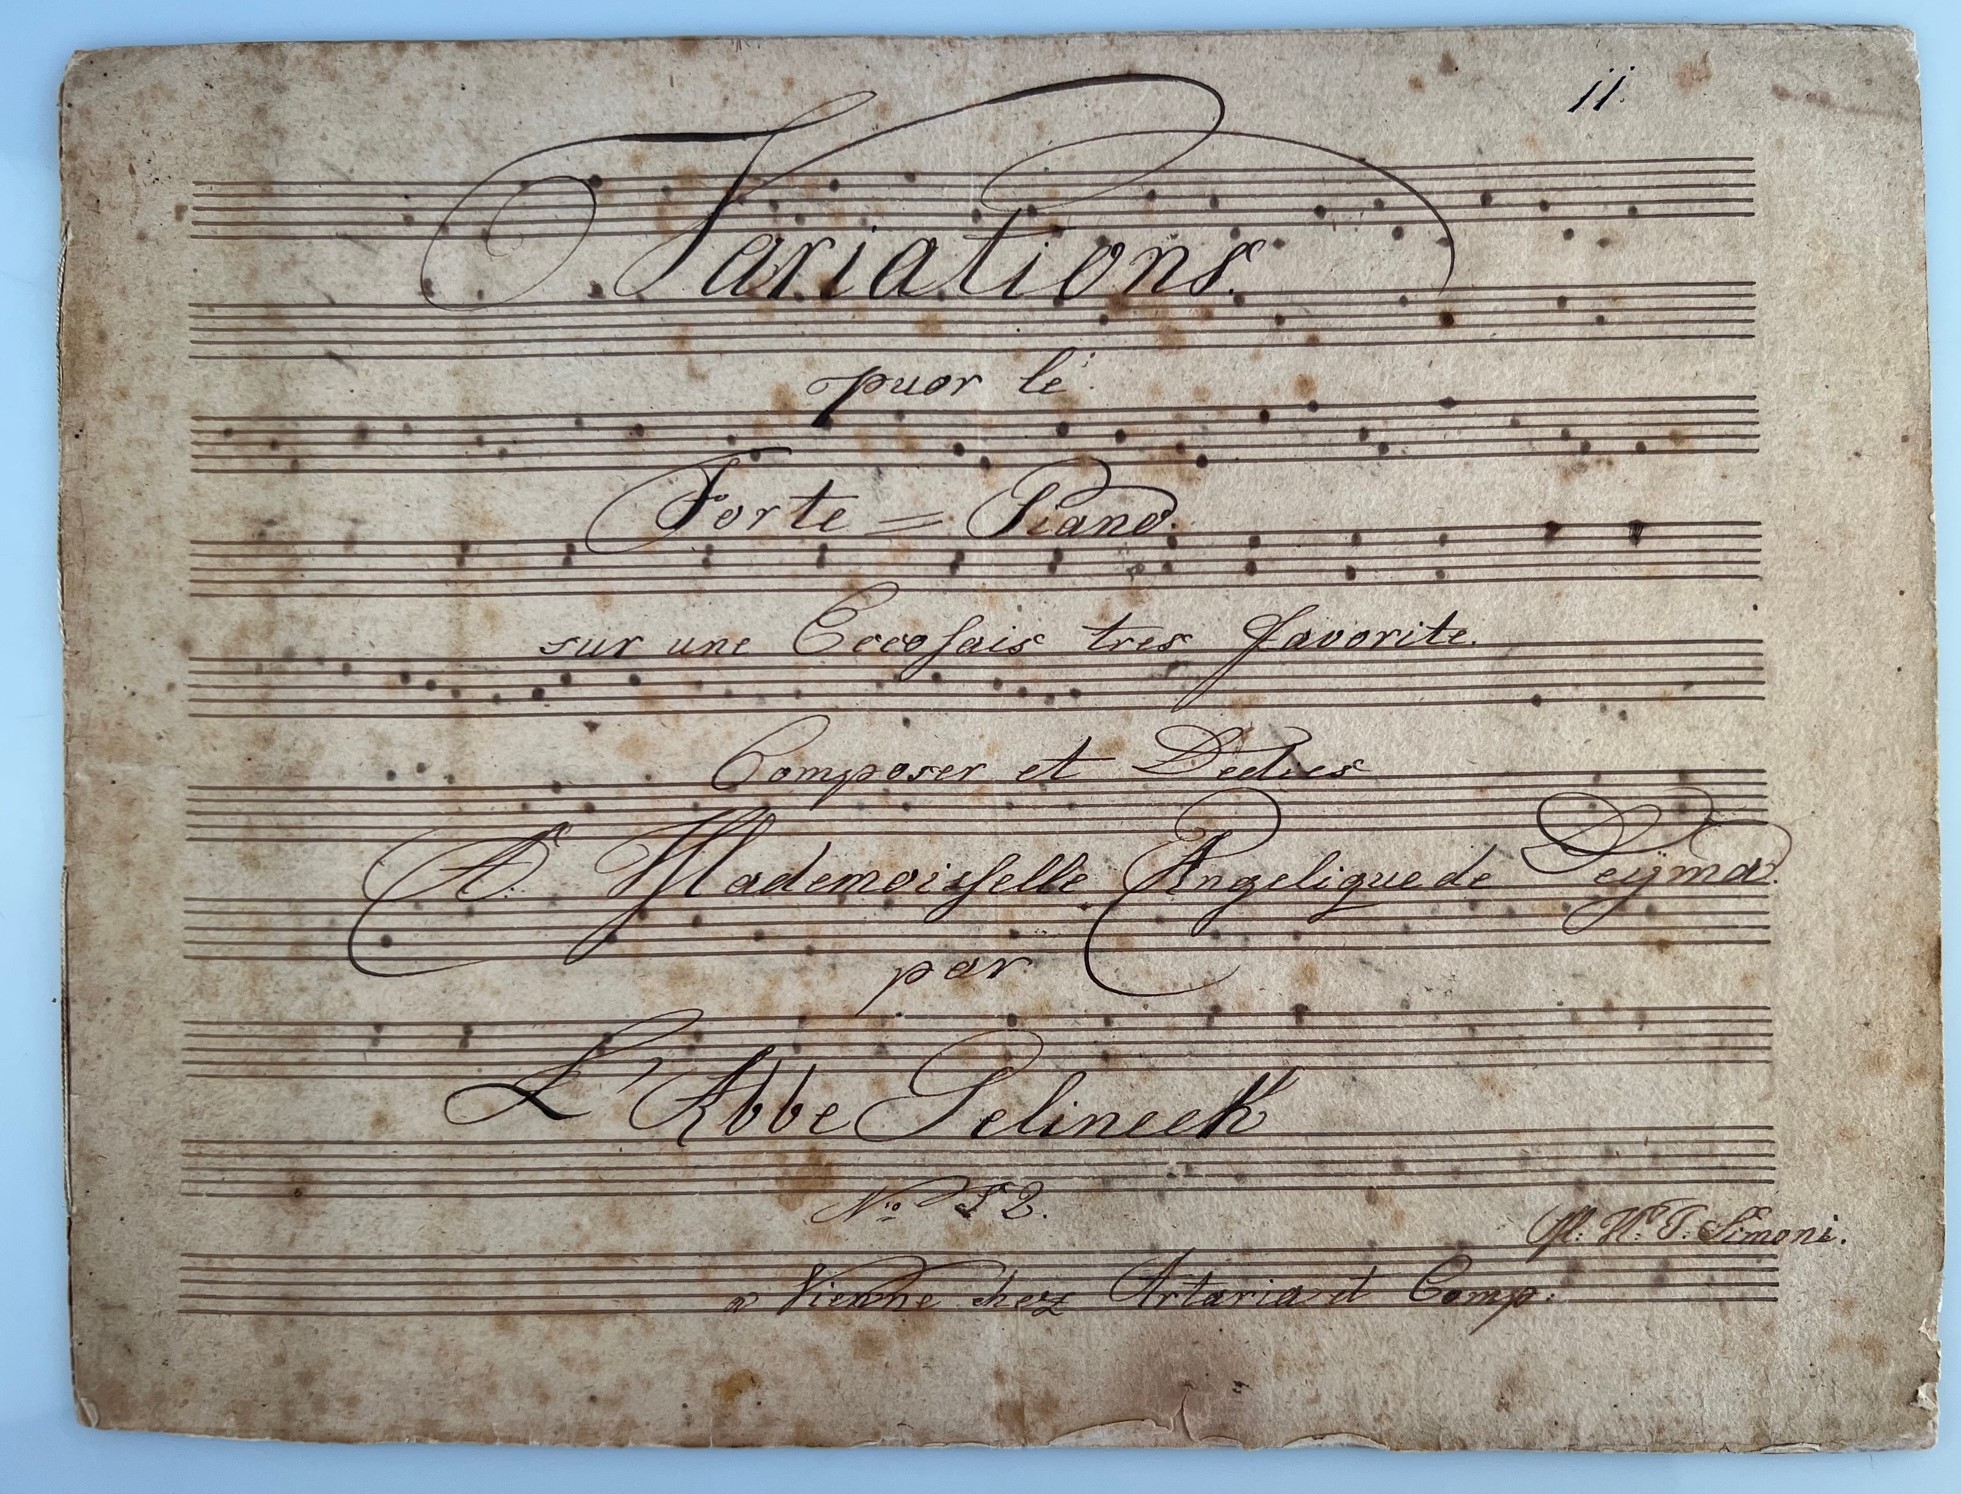 11.
Variations.
puor le
Forte = Piano.
sur une Eccoſais tres favorite.
Composer et Dedies
A Mademoisſelle Angelique de Peÿma.
par
L'Abbe Gelineck
No 52.
Simoni.
a Vienne chez Artaria et Comp: